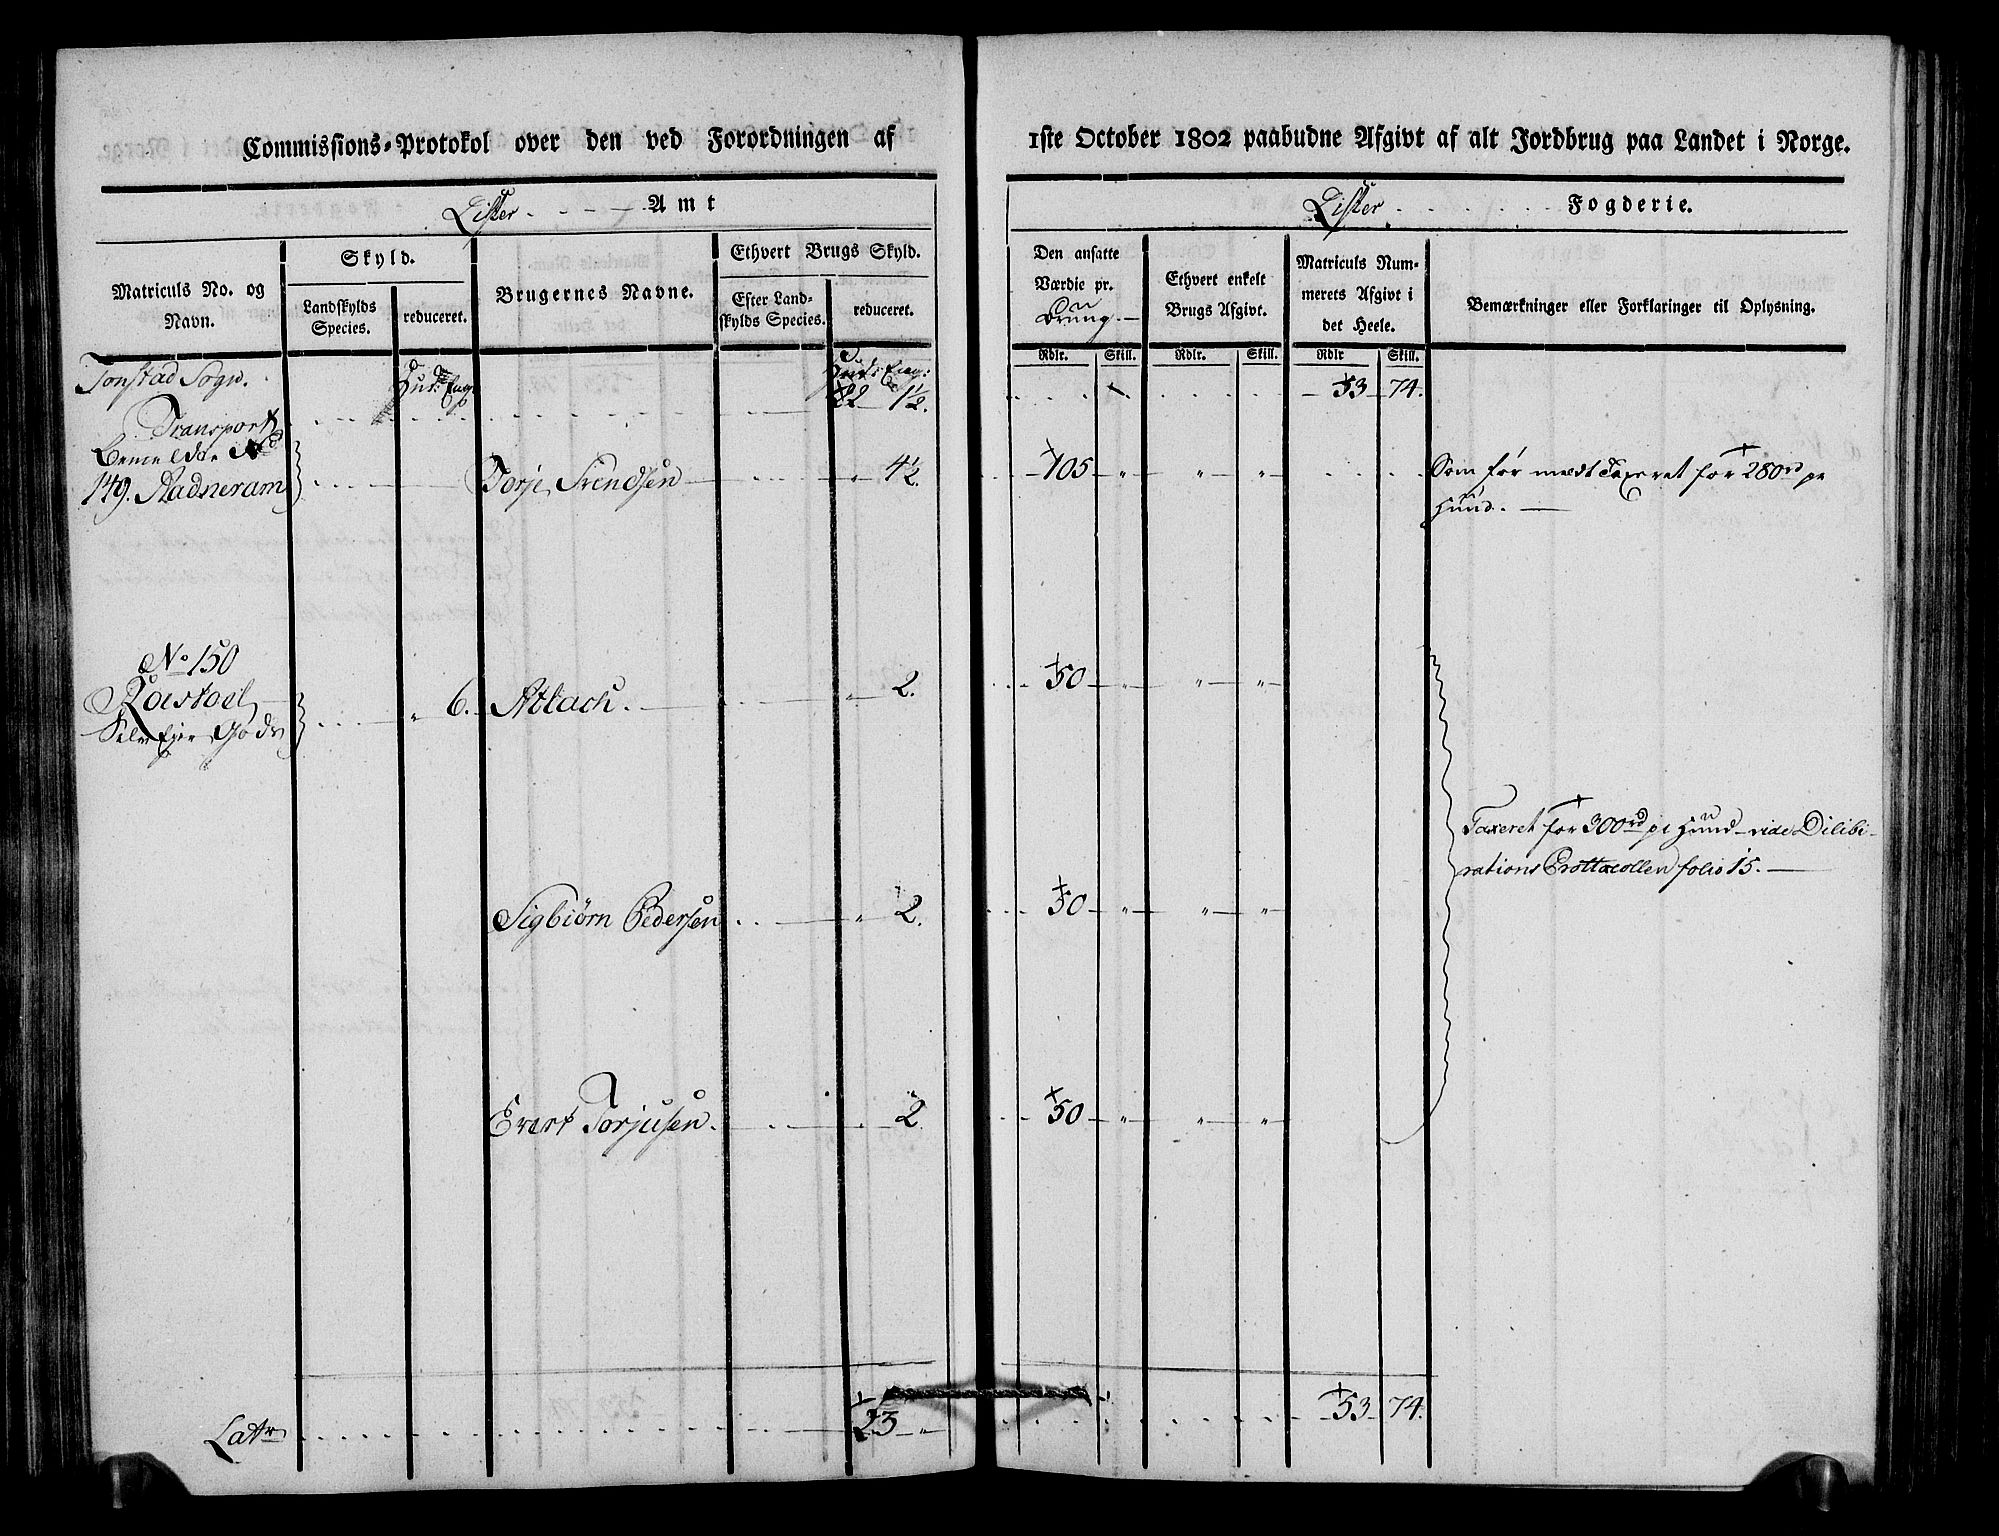 Commissions-Protokol over den ved Forordningen af
Lister Amt
Matriculs No. og Navn.
Skyld.
Landskylds Species.
reduceret.
Brugernes Navne.
Ethvert Brugs Skyld.
Efter Landskylds Species.
reduceret.
Tonstad Sogn.
Hud: Eng:
Hud: Eng:
Transport
22 1½.
149. Aadneram
Torje Svendsen
" 4½.
No 150
Roestoel
Selv Eyer Gods
" 6.
Atlach.
" 2.
Sigbiörn Pedersen
" 2.
Evert Torjusen.
2
Latr
23 "
1ste October 1802 paabudne Afgivt af alt Jordbrug paa Landet i Norge.
Lister Fogderie.
Den ansatte Værdie pr.
Ethvert enkelt Brugs Afgivt.
Matriculs Nummerets Afgivt i det Heele.
Bemærkninger eller Forklaringer til Oplysning.
Rdlr. Skill. Rdlr. Skill. Rdlr Skill.
53 74.
105 " " "
Som før meldt Taxeret for 280rd pr
Huud.
50 " " "
Taxeret for 300rd pr Huud vide Dilibi-
rations Prottocollen folio 15.
50 " " "
50 " " "
53 74.